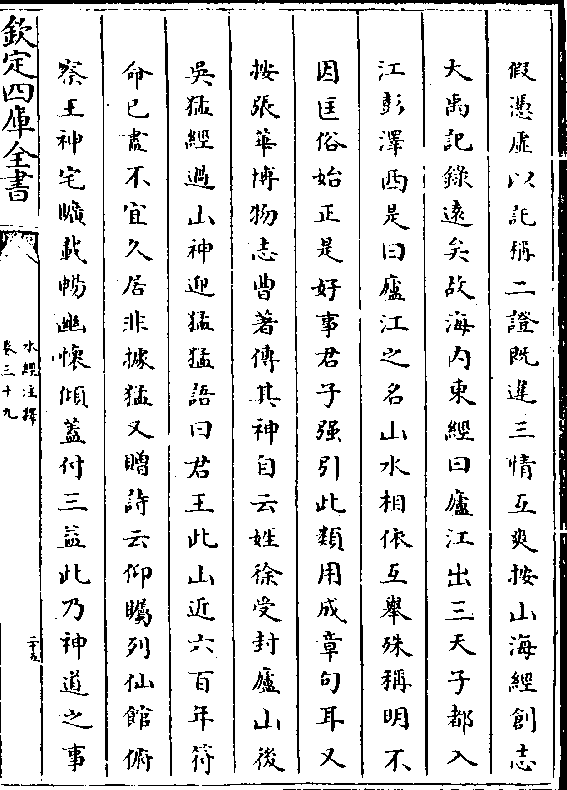 假憑虛以託稱二證既違三情互爽按山海經創志
大禹記錄遠矣故海內東經曰廬江出三天子都入
江彭澤西是曰廬江之名山水相依互舉殊稱明不
因匡俗始正是好事君子强引此類用成章句耳又
按張華博物志曹著傳其神自云姓徐受封廬山後
吳猛經過山神迎猛猛語曰君王此山近六百年符
命已盡不宜久居非據猛又贈詩云仰矚列仙館俯
察王神宅曠載暢幽懷傾蓋付三益此乃神道之事
欽定四庫全書
水經注釋
卷三十九
二十五